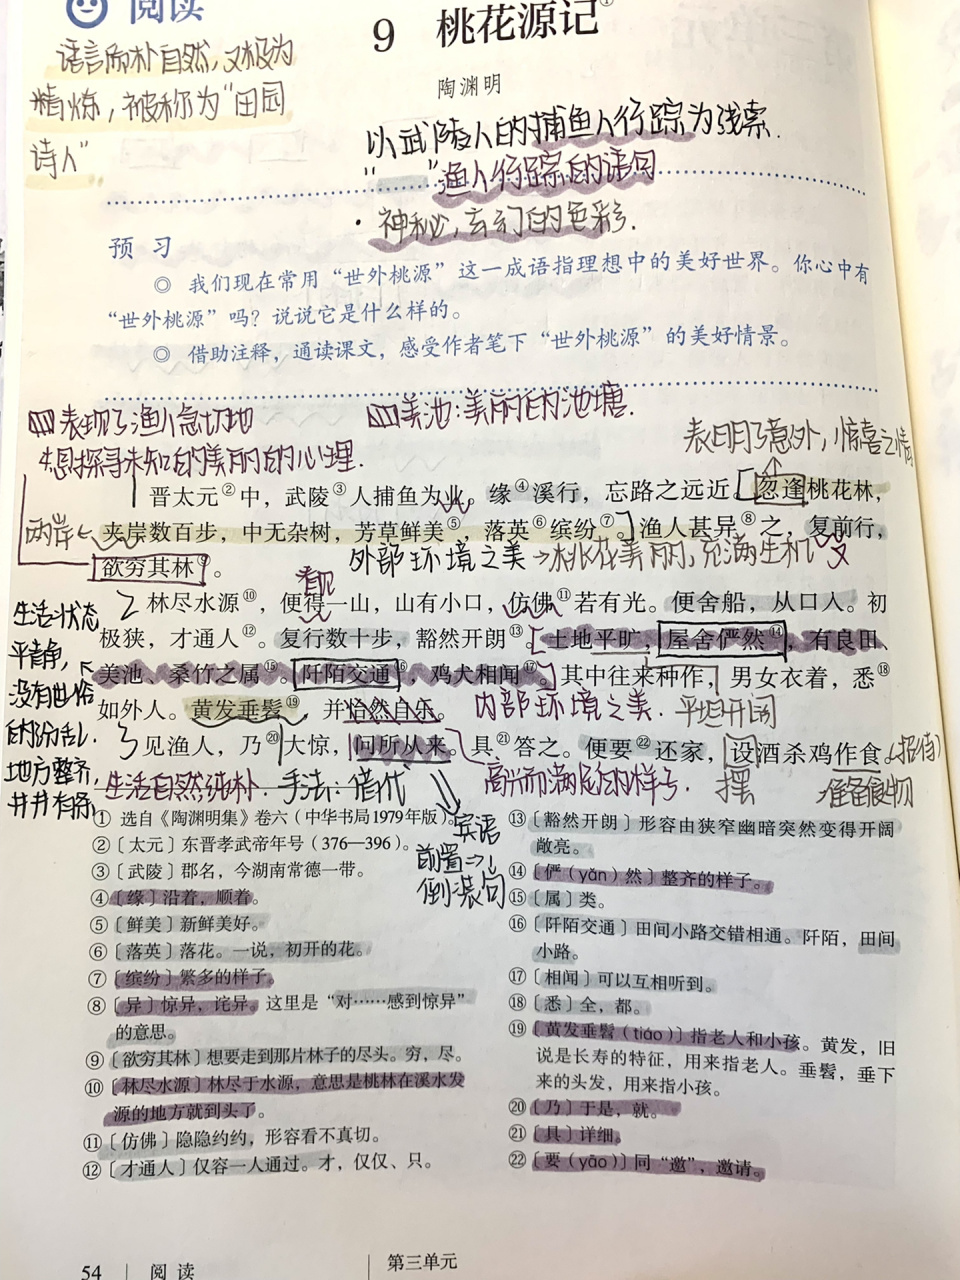 阅读
9 桃花源记①
陶渊明
语言质朴自然,又极为
精炼,被称为“田园
诗人”
以武陵人的捕鱼人行踪为线索.
“ ”渔人行踪的语句
·神秘,玄幻的色彩.
预 习
◎ 我们现在常用“世外桃源”这一成语指理想中的美好世界。你心中有
“世外桃源”吗?说说它是什么样的。
◎ 借助注释,通读课文,感受作者笔下“世外桃源”的美好情景。
表现了渔人急切地
想探寻未知的美丽的心理.
美池:美丽的池塘.
表明了意外,惊喜之情
晋太元②中,武陵③人捕鱼为业。缘④溪行,忘路之远近。忽逢桃花林,
两岸
夹岸数百步,中无杂树,芳草鲜美⑤,落英⑥缤纷⑦。渔人甚异⑧之,复前行,
欲穷其林⑨。
外部环境之美→桃花美丽,充满生机
又
看见
林尽水源⑩,便得一山,山有小口,仿佛⑪若有光。便舍船,从口入。初
极狭,才通人⑫。复行数十步,豁然开朗⑬。土地平旷,屋舍俨然⑭,有良田、
美池、桑竹之属⑮。阡陌交通⑯,鸡犬相闻⑰。其中往来种作,男女衣着,悉⑱
如外人。黄发垂髫⑲,并怡然自乐。
内部环境之美.
平坦开阔
生活状态
平静,
没有世俗
的纷乱.
地方整齐,
井井有条
见渔人,乃⑳大惊,问所从来。具㉑答之。便要㉒还家,设酒杀鸡作食。
(招待)
生活自然纯朴.
手法:借代
高兴而满足的样子.
摆
准备食物
宾语
前置⇒
倒装句
① 选自《陶渊明集》卷六(中华书局1979年版)。
②〔太元〕东晋孝武帝年号(376—396)。
③〔武陵〕郡名,今湖南常德一带。
④〔缘〕沿着,顺着。
⑤〔鲜美〕新鲜美好。
⑥〔落英〕落花。一说,初开的花。
⑦〔缤纷〕繁多的样子。
⑧〔异〕惊异,诧异。这里是“对……感到惊异”
的意思。
⑨〔欲穷其林〕想要走到那片林子的尽头。穷,尽。
⑩〔林尽水源〕林尽于水源,意思是桃林在溪水发
源的地方就到头了。
⑪〔仿佛〕隐隐约约,形容看不真切。
⑫〔才通人〕仅容一人通过。才,仅仅、只。
⑬〔豁然开朗〕形容由狭窄幽暗突然变得开阔
敞亮。
⑭〔俨(yǎn)然〕整齐的样子。
⑮〔属〕类。
⑯〔阡陌交通〕田间小路交错相通。阡陌,田间
小路。
⑰〔相闻〕可以互相听到。
⑱〔悉〕全,都。
⑲〔黄发垂髫(tiáo)〕指老人和小孩。黄发,旧
说是长寿的特征,用来指老人。垂髫,垂下
来的头发,用来指小孩。
⑳〔乃〕于是,就。
㉑〔具〕详细。
㉒〔要(yāo)〕同“邀”,邀请。
54 | 阅 读
第三单元